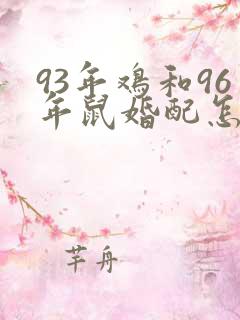 93年鸡和96
年鼠婚配怎
芊舟